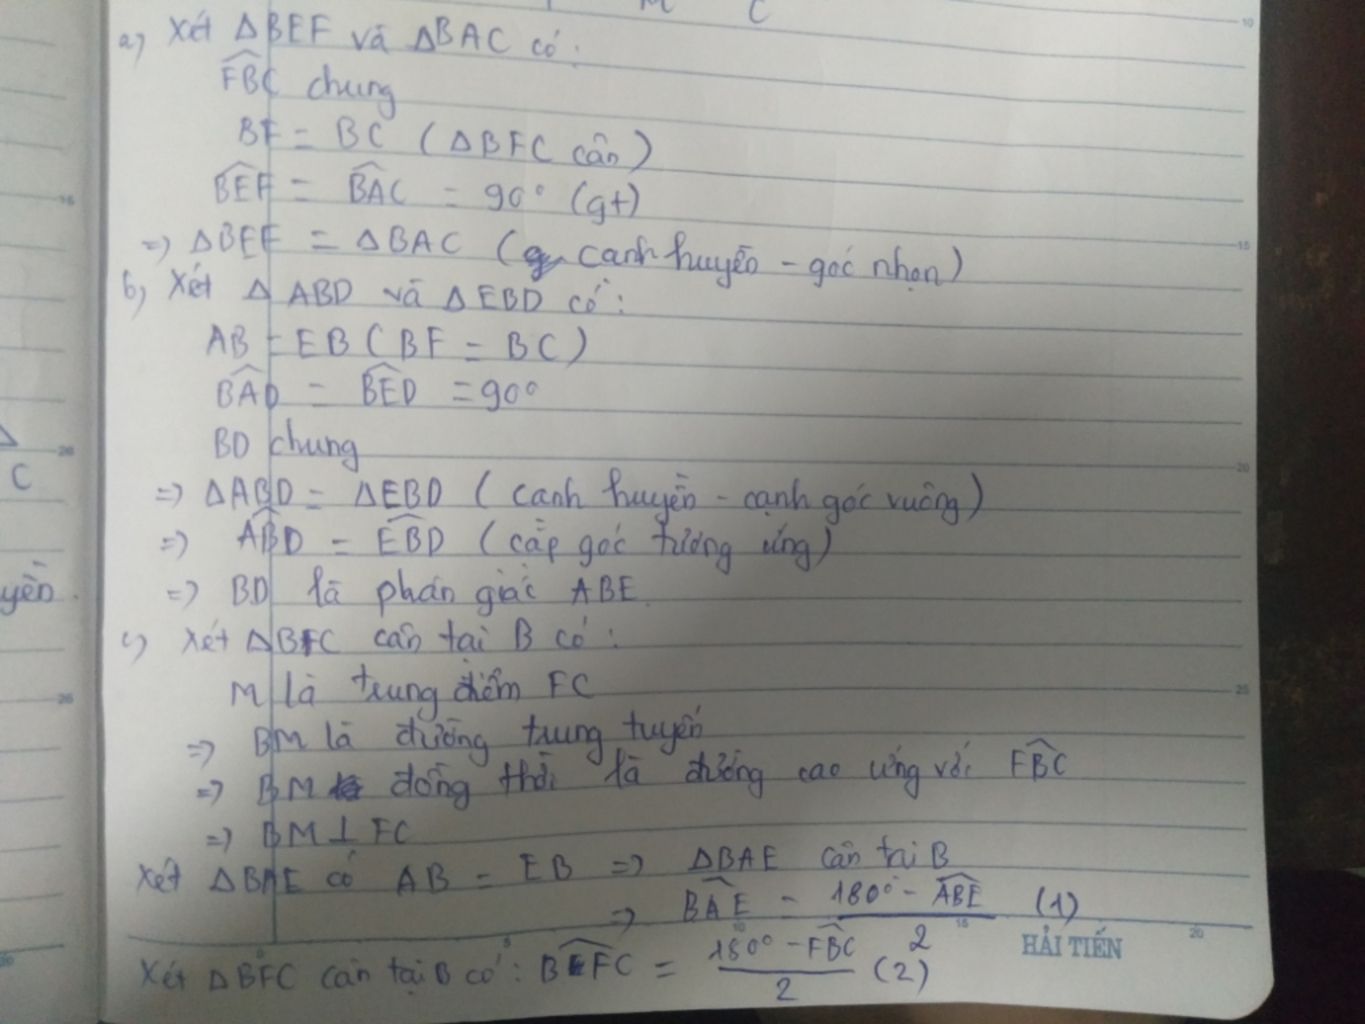 M C
a) Xét ΔBEF và ΔBAC có:
FBC chung
BF = BC (ΔBFC cân)
BEF = BAC = 90° (gt)
=> ΔBEF = ΔBAC (cạnh huyền - góc nhọn)
b) Xét Δ ABD và ΔEBD có:
AB = EB (BF = BC)
BAD = BED = 90°
BD chung
=> ΔABD = ΔEBD (cạnh huyền - cạnh góc vuông)
=> ABD = EBD (cặp góc tương ứng)
=> BD là phân giác ABE
c) Xét ΔBFC cân tại B có:
M là trung điểm FC
=> BM là đường trung tuyến
=> BM đồng thời là đường cao ứng với FBC
=> BM ⊥ FC
Xét ΔBAE có AB = EB => ΔBAE cân tại B
=> BAE = (180° - ABE)/2 (1)
Xét ΔBFC cân tại B có: BFC = (180° - FBC)/2 (2)
HẢI TIẾN
C
yền